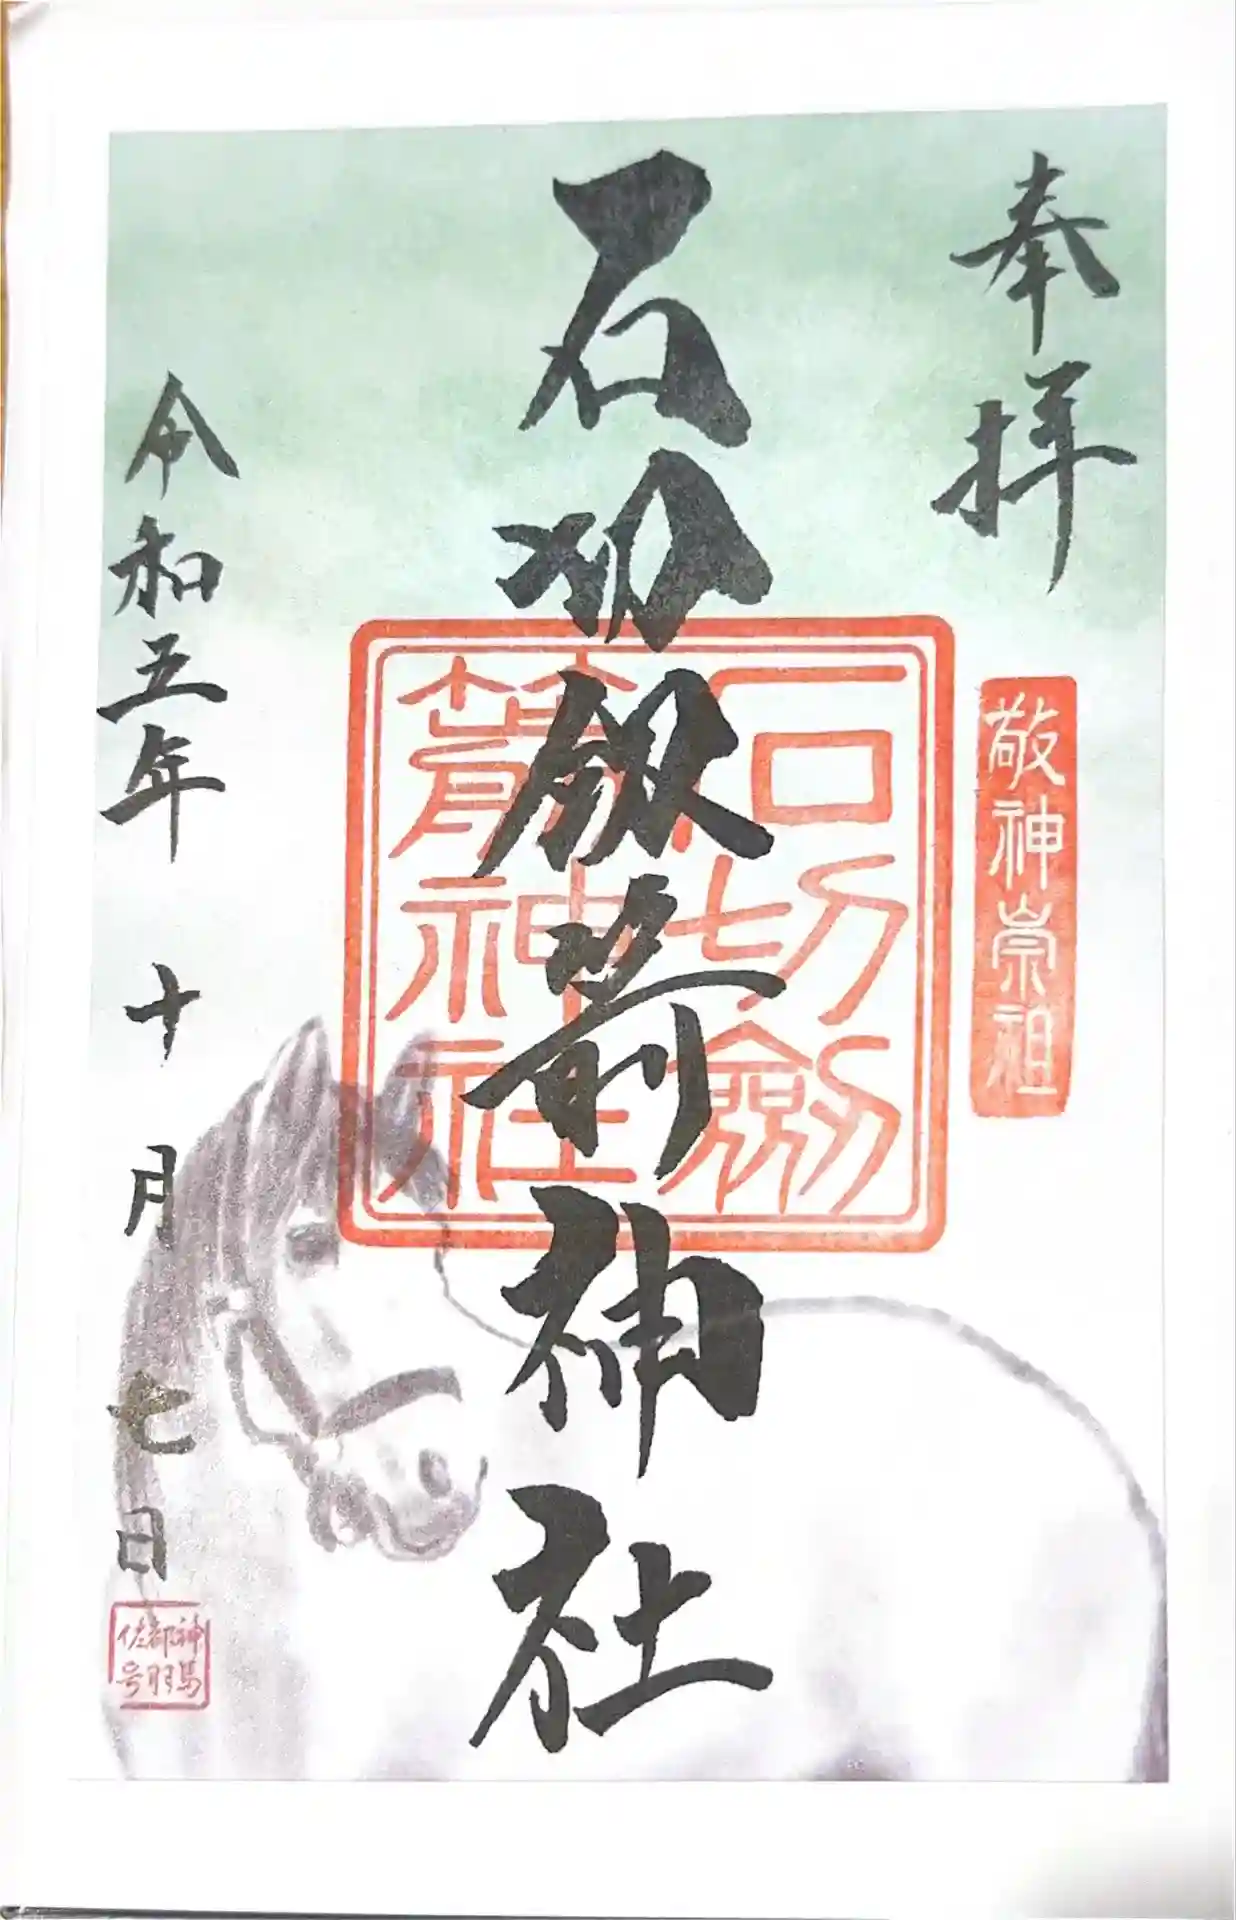 奉拝
敬神崇祖
石切劔箭神社
石切劔
箭神社
令和五年十月七日
神馬
都月
佐号